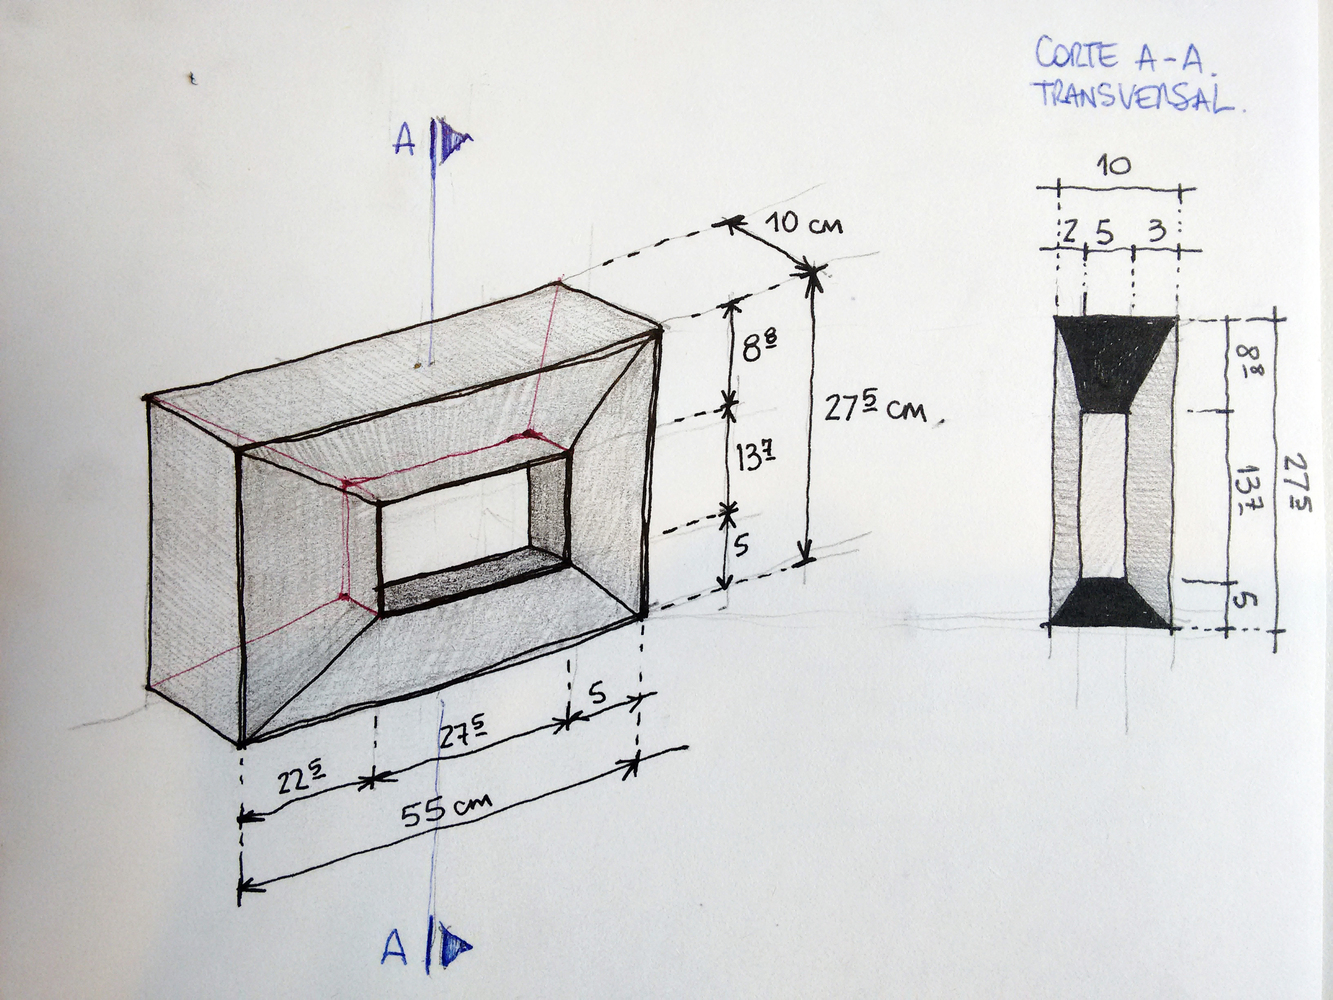 CORTE A-A.
TRANSVERSAL.
A
10 cm
8⁸
27⁵ cm.
13⁷
5
5
27⁵
22⁵
55 cm
A
10
2 5 3
8⁸
13⁷
27⁵
5